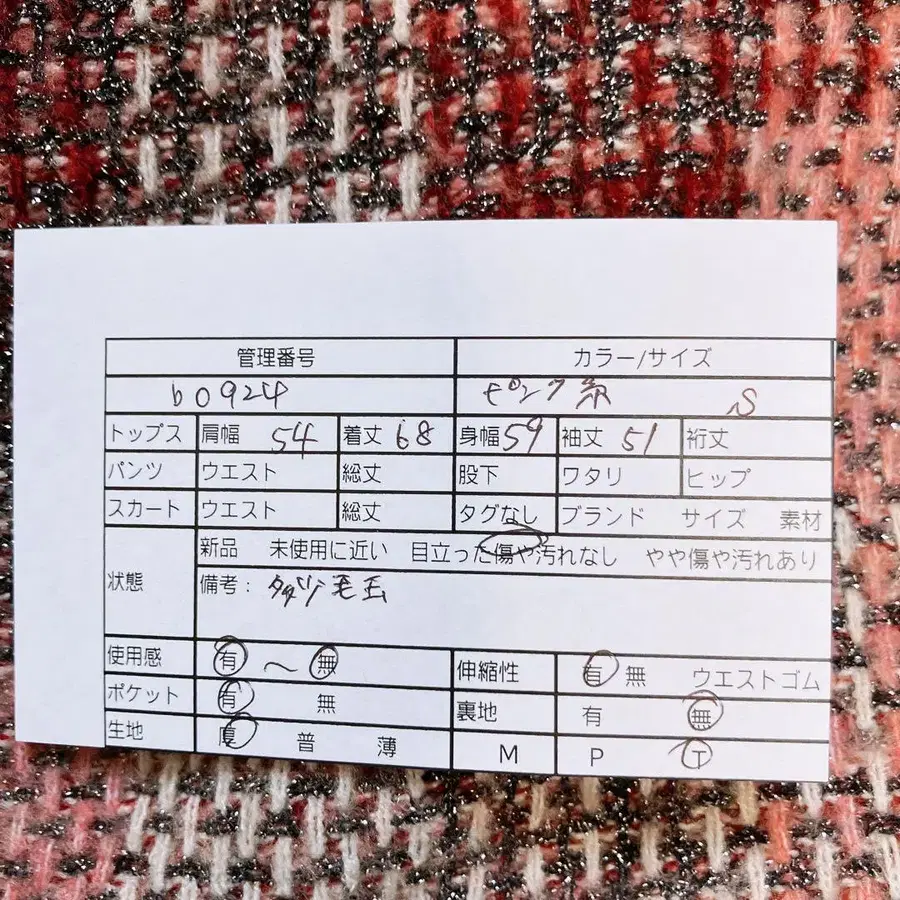 管理番号 カラー/サイズ
b0924 ピンク系 S
トップス 肩幅 54 着丈 68 身幅 59 袖丈 51 裄丈
パンツ ウエスト 総丈 股下 ワタリ ヒップ
スカート ウエスト 総丈 タグなし ブランド サイズ 素材
状態 新品 未使用に近い 目立った傷や汚れなし やや傷や汚れあり
備考: 毛玉
使用感 有 ～ 無 伸縮性 有 無 ウエストゴム
ポケット 有 無 裏地 有 無
生地 厚 普 薄 M P T